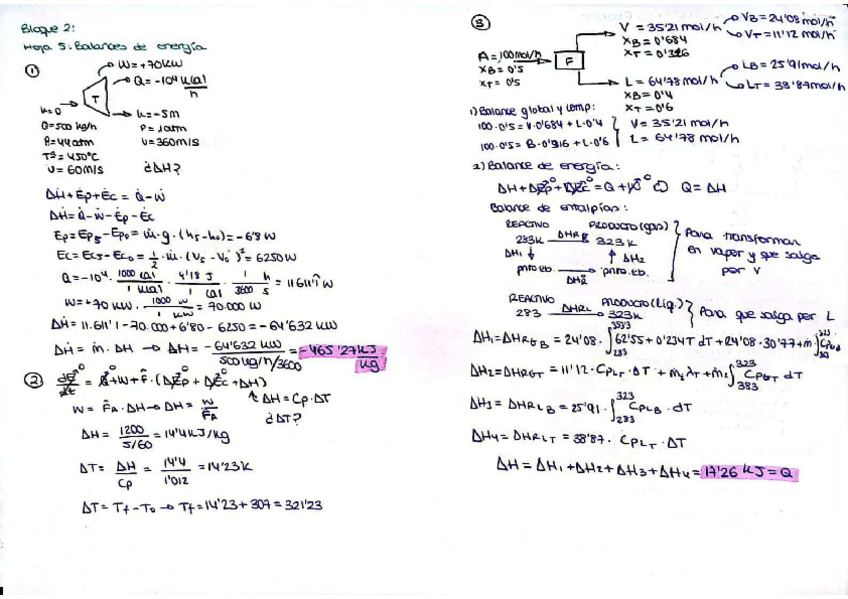 Bloque 2:
Hoja 5: Balances de energía
①
W = +70KW
Q = -10⁴ Kcal/h
T
h=0
h = -5m
Q=500 kg/h
P = 1 atm
P=44 atm
v = 360 m/s
Tª = 450°C
v = 60 M/s
¿ΔH?
ΔḢ + Ėp + Ėc = Q̇ - Ẇ
ΔḢ = Q̇ - Ẇ - Ėp - Ėc
Ep = Ep₅ - Ep₀ = ṁ · g · (h₅ - h₀) = -6'8 W
Ec = Ec₅ - Ec₀ = 1/2 · ṁ · (V₅ - V₀)² = 6250 W
Q = -10⁴ · 1000 cal/1 kcal · 4'18 J/1 cal · 1/3600 h/s = 11611'1 W
W = +70 KW · 1000 W/1 KW = 70.000 W
ΔḢ = 11.611'1 - 70.000 + 6'80 - 6250 = -64'632 KW
ΔḢ = ṁ · ΔH → ΔH = -64'632 KW/500 kg/h/3600 = -465'27 KJ/kg
②
W = F̂A · ΔH → ΔH = W/F̂A
ΔH = Cp · ΔT
¿ΔT?
ΔH = 1200/5/60 = 14'4 KJ/kg
ΔT = ΔH/Cp = 14'4/1'012 = 14'23 K
ΔT = Tf - T₀ → Tf = 14'23 + 307 = 321'23
③
V = 35'21 mol/h
VB = 24'08 mol/h
VT = 11'12 mol/h
XB = 0'684
A = 100 mol/h
XB = 0'5
XT = 0'5
F
L = 64'78 mol/h
LB = 25'91 mol/h
LT = 38'87 mol/h
XB = 0'4
XT = 0'6
1) Balance global y comp:
100·0'5 = V·0'684 + L·0'4
100·0'5 = B·0'316 + L·0'6
V = 35'21 mol/h
L = 64'78 mol/h
2) Balance de energía:
Q = ΔH
Balance de entalpías:
REACTIVO PRODUCTO (gas)
283K ΔHR 323K
ΔH₁ ↓ ↑ ΔH₂
pnto eb. → pnto. eb.
Para transformar
en vapor y que salga
por V
REACTIVO PRODUCTO (Liq.)
283 ΔHRL 323K
Para que salga por L
ΔH₂ = ΔHRGT = 11'12 · CPLT · ΔT + ṁ₂λT + ṁ₂∫₃₈₃³²³ CPGT dT
ΔH₃ = ΔHRLB = 25'91 · ∫₂₈₃³²³ CPLB · dT
ΔH₄ = ΔHRLT = 38'87 · CPLT · ΔT
ΔH = ΔH₁ + ΔH₂ + ΔH₃ + ΔH₄ = 17'26 KJ = Q